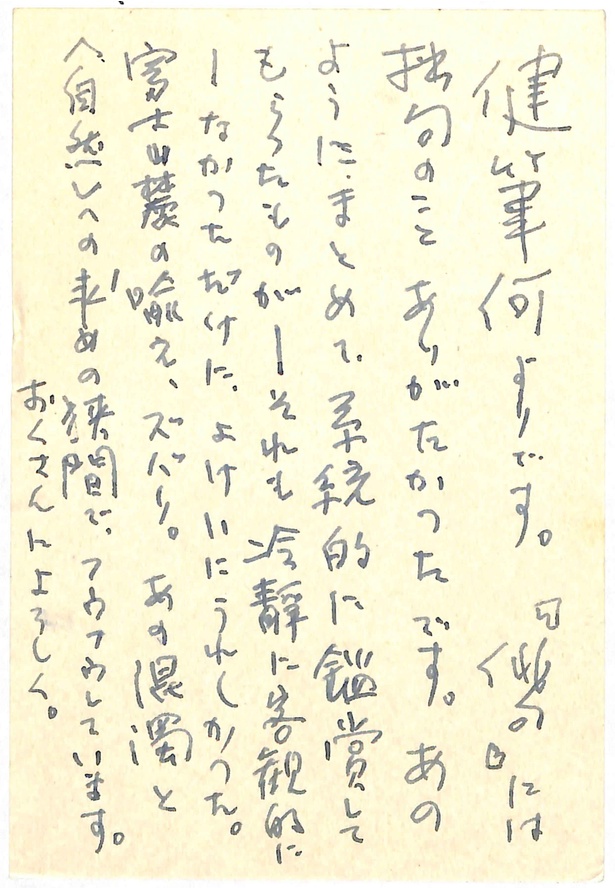 健筆何よりです。『俳の』には
拙句のことありがたかったです。あの
ように、まとめて、系統的に鑑賞して
もらったものが―それも冷静に客観的に
―なかっただけに、よけいにうれしかった。
富士山麓の喩え、ズバリ。あの混濁と
〈自然〉への求めの狭間で、フウフウしています。
おくさんによろしく。